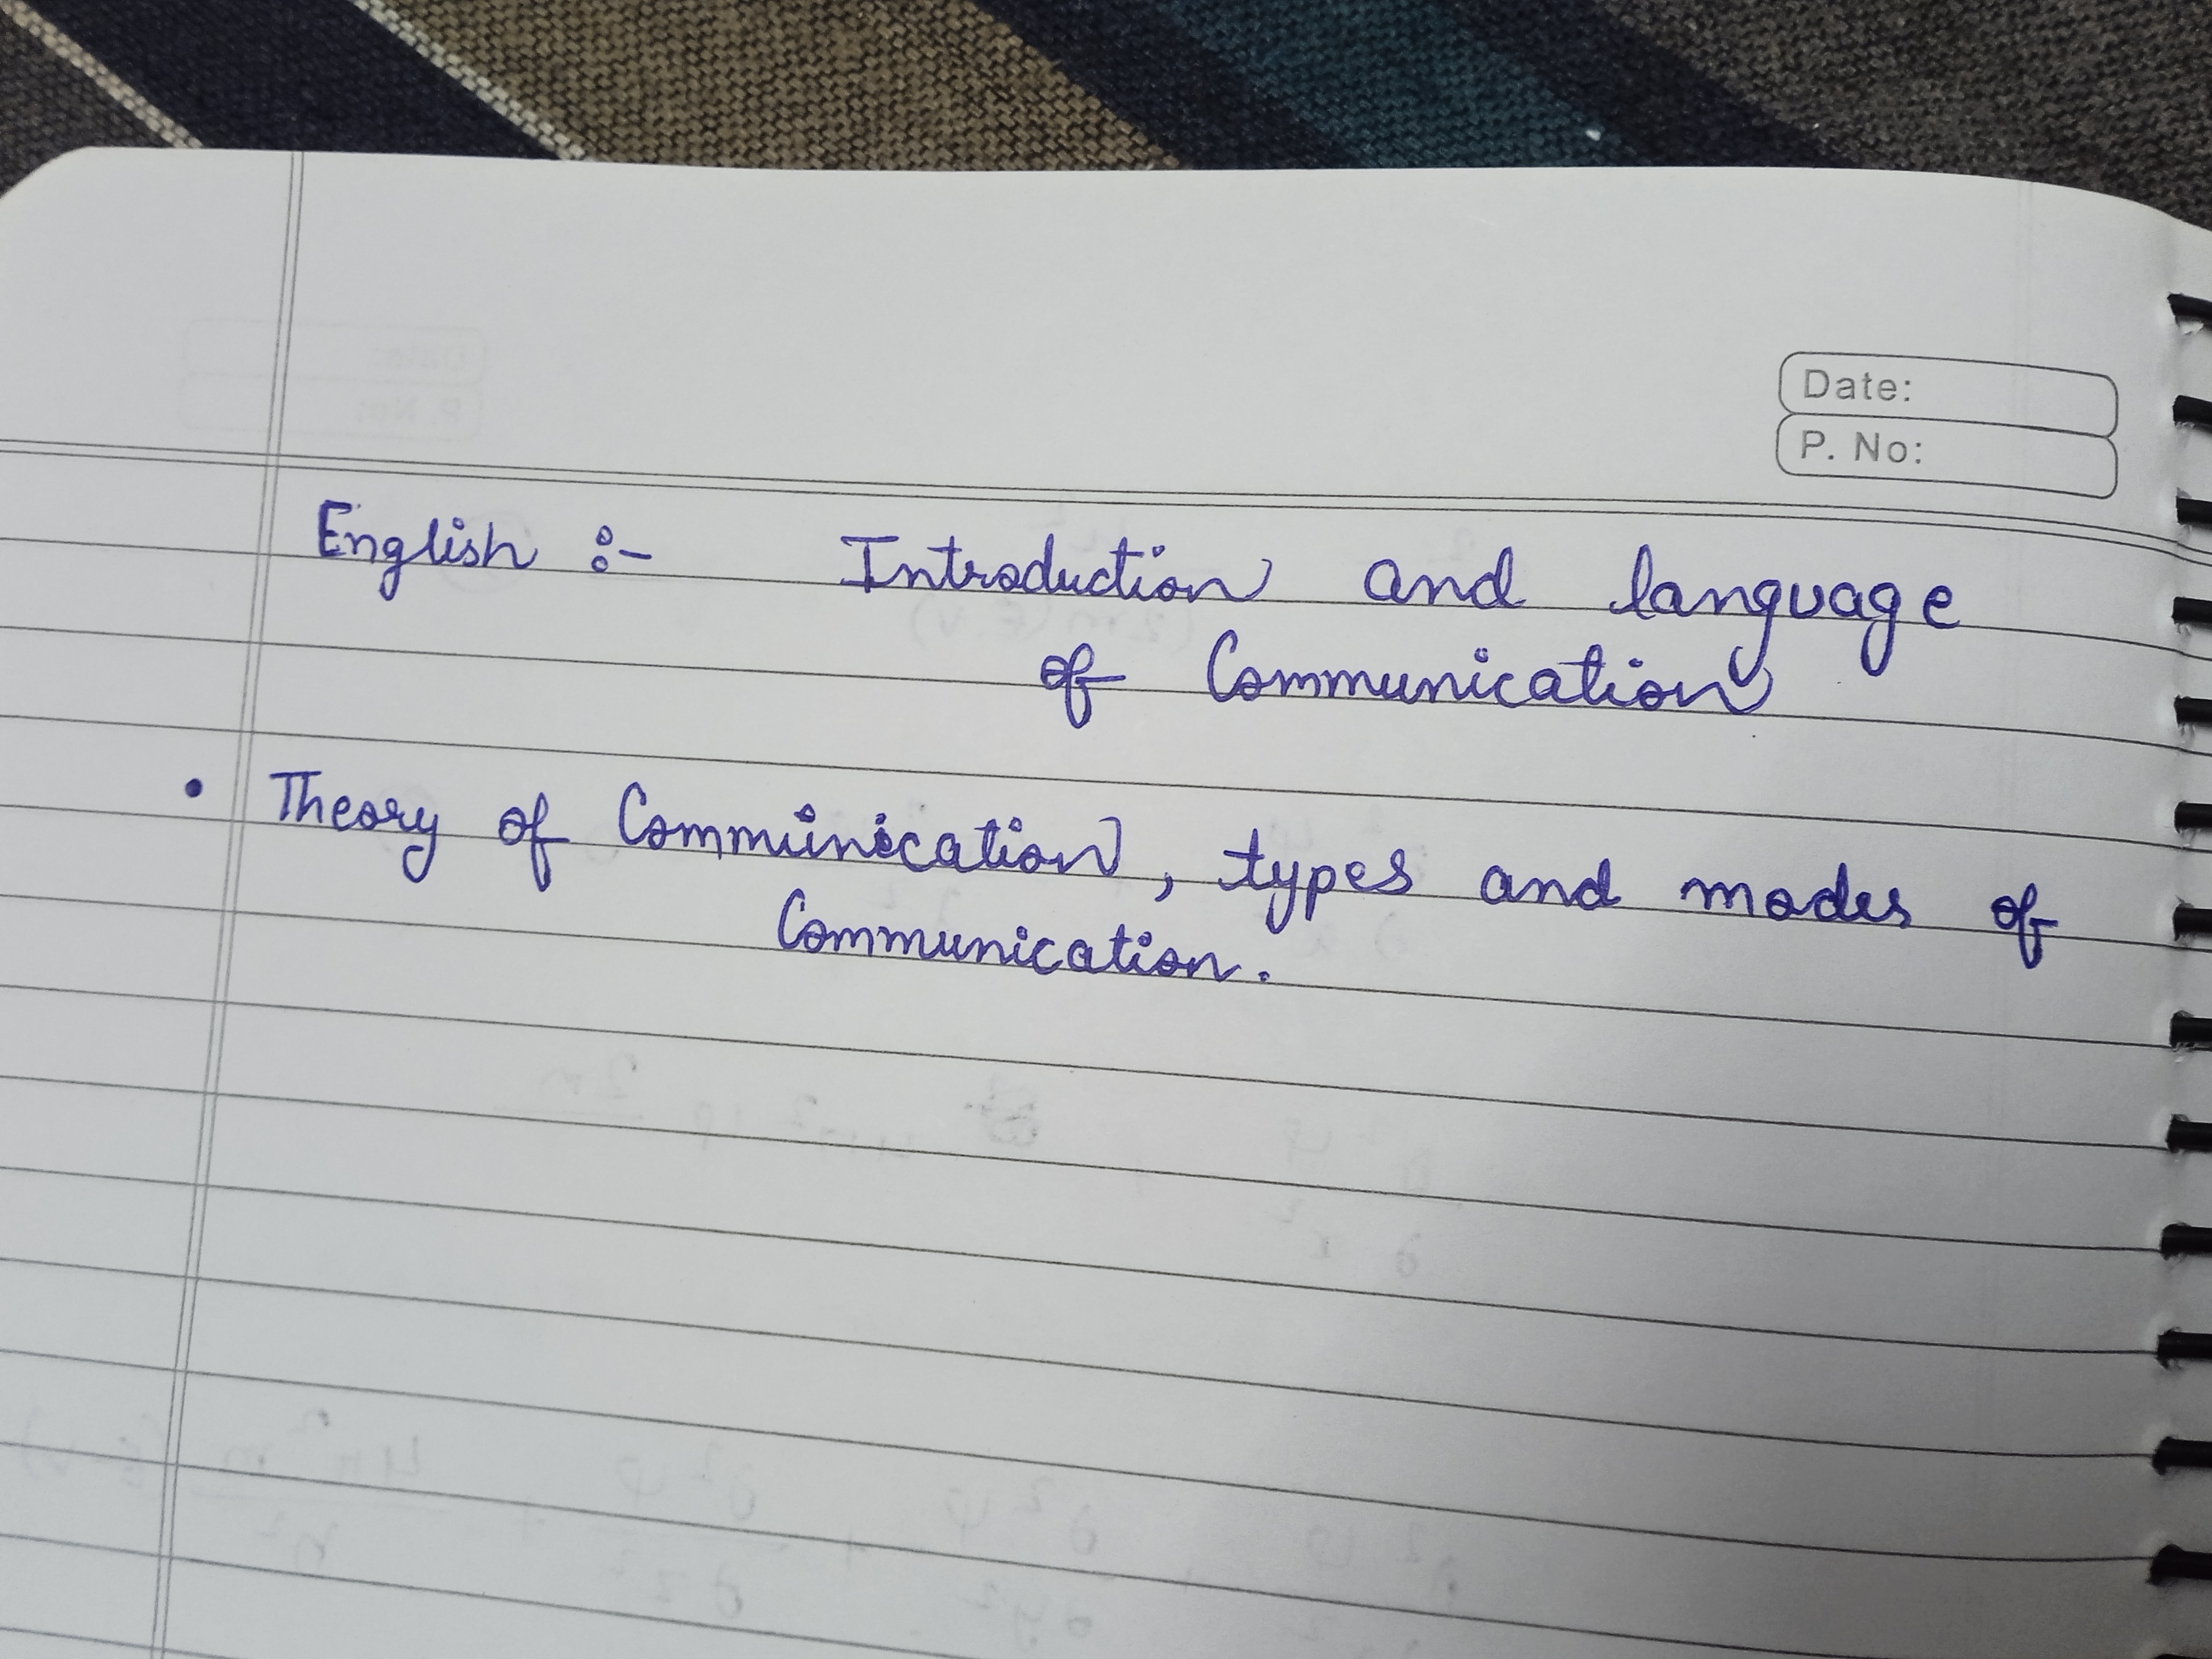 Date:
P. No:
English :- Introduction and language
of Communication
• Theory of Communication, types and modes of
Communication.